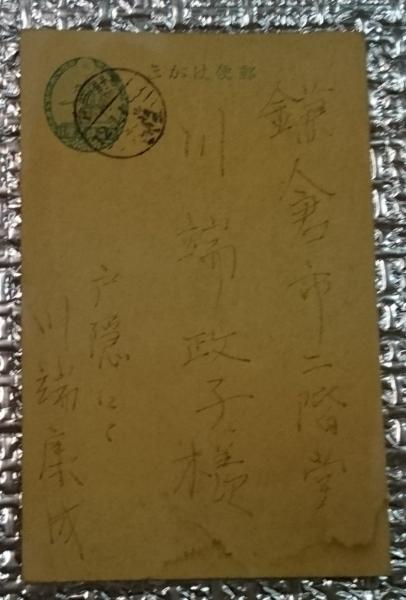 きがは便郵
鎌倉市二階堂
川端政子様
戸隠にて
川端康成